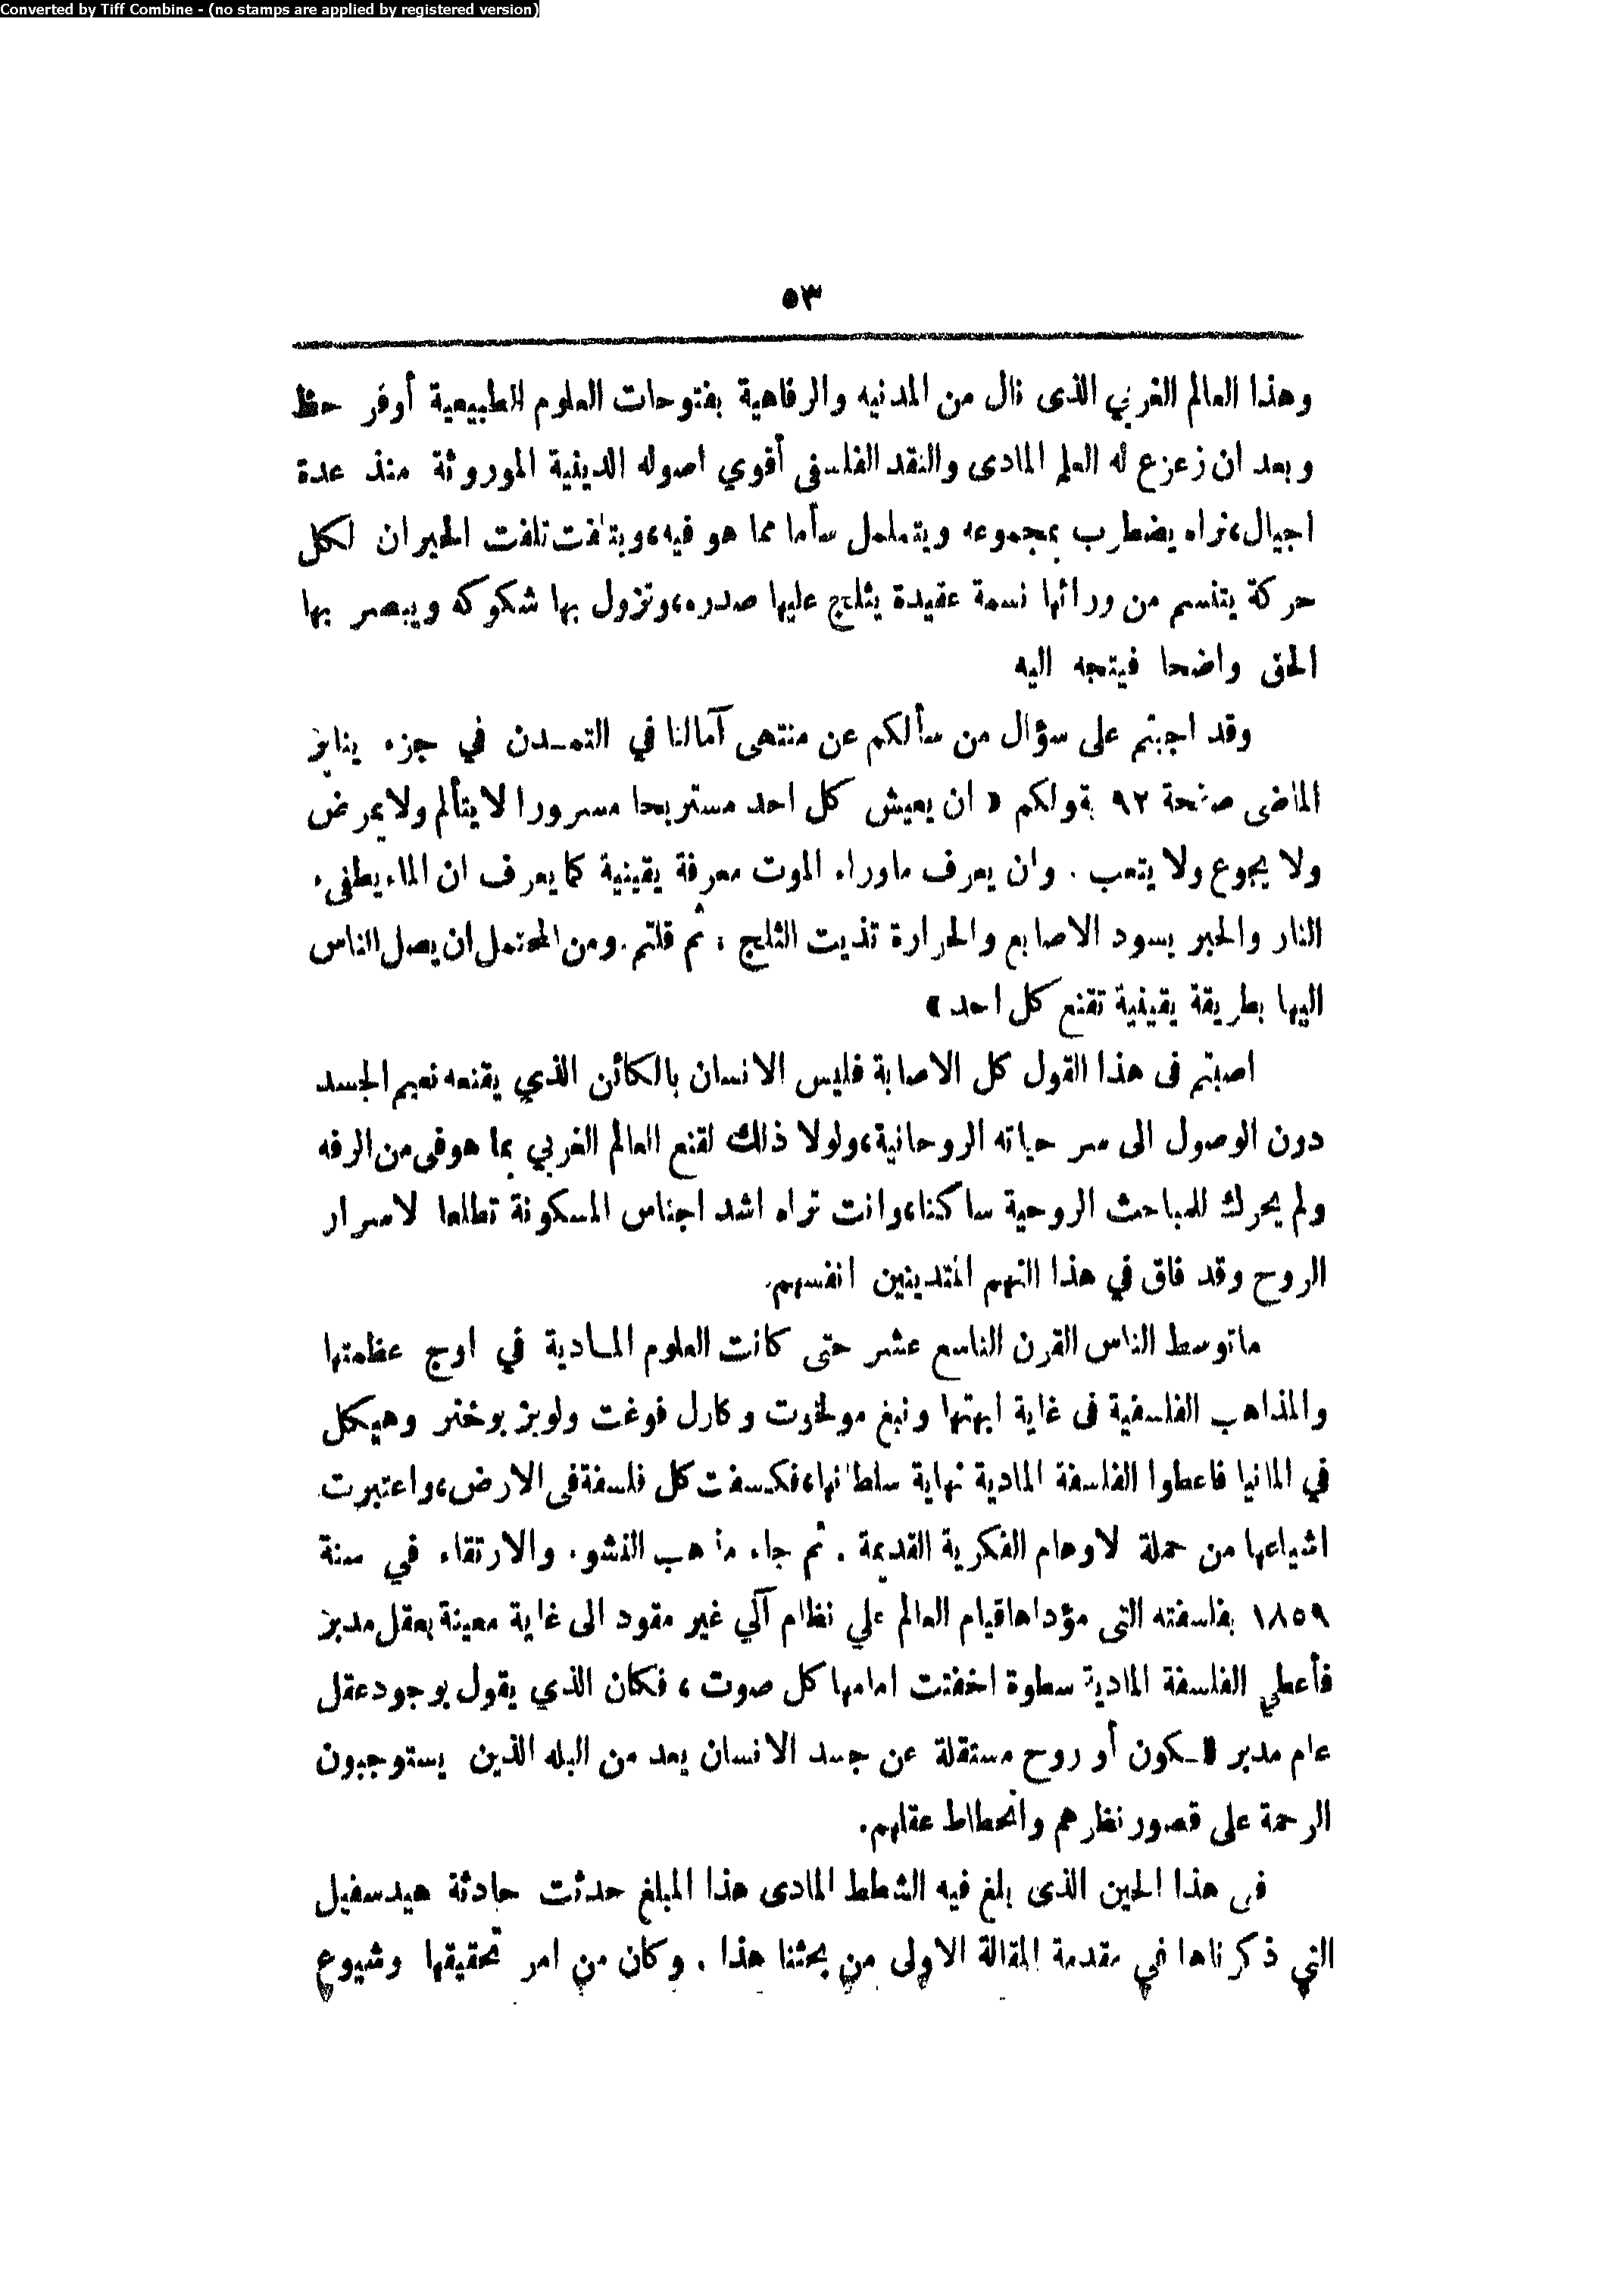 Converted by Tiff Combine - (no stamps are applied by registered version)
٥٣
وهذا العالم الغربي الذى نال من المدنيه والرفاهية بفتوحات العلوم الطبيعية أوفر حظ
وبعد ان زعزع له العلم المادى والنقد الفلسفى أقوي اصوله الدينية الموروثة منذ عدة
اجيال، نراه يضطرب بمجموعه ويتململ سأما مما هو فيه، ويتلفت تلفت الحيران لكل
حركة يتنسم من ورائها نسمة عقيدة يثلج عليها صدره، وتزول بها شكوكه ويبصر بها
الحق واضحا فيتجه اليه
وقد اجبتم على سؤال من سألكم عن منتهى آمالنا في التمدن في جزء يناير
الماضى صفحة ٩٢ بقولكم « ان يعيش كل احد مستريحا مسرورا لا يتألم ولا يمرض
ولا يجوع ولا يتعب . وان يعرف ماوراء الموت معرفة يقينية كما يعرف ان الماء يطفىء
النار والحبر يسود الاصابع والحرارة تذيب الثلج ، ثم قلتم . ومن المحتمل ان يصل الناس
اليها بطريقة يقينية تقنع كل احد »
اصبتم فى هذا القول كل الاصابة فليس الانسان بالكائن الذي يقنعه نعيم الجسد
دون الوصول الى سر حياته الروحانية، ولولا ذلك لقنع العالم الغربي بما هو فى من الرفه
ولم يحرك للمباحث الروحية ساكنا، وانت تراه اشد اجناس المسكونة تطلعا لاسرار
الروح وقد فاق في هذا النهم المتدينين انفسهم.
ماتوسط الناس القرن التاسع عشر حتى كانت العلوم المادية في اوج عظمتها
والمذاهب الفلسفية فى غاية ابهتها ونبغ مولخوت وكارل فوغت ولويز بوخنر وهيكل
في المانيا فاعطوا الفلسفة المادية نهاية سلطانها، فكسفت كل فلسفة فى الارض، واعتبرت
اشياعها من حملة لاوهام الفكرية القديمة . ثم جاء مذهب النشوء والارتقاء في سنة
١٨٥٩ بفلسفته التى مؤداها قيام العالم علي نظام آلي غير مقود الى غاية معينة بعقل مدبر
فأعطي الفلسفة المادية سطوة اخفتت امامها كل صوت ، فكان الذي يقول بوجود عقل
عام مدبر للكون أو روح مستقلة عن جسد الانسان يعد من البله الذين يستوجبون
الرحمة على قصور نظرهم وانحطاط عقلهم.
فى هذا الحين الذى بلغ فيه الشطط المادى هذا المبلغ حدثت حادثة هيدسفيل
التي ذكرناها في مقدمة المقالة الاولى من بحثنا هذا . وكان من امر تحقيقها وشيوع